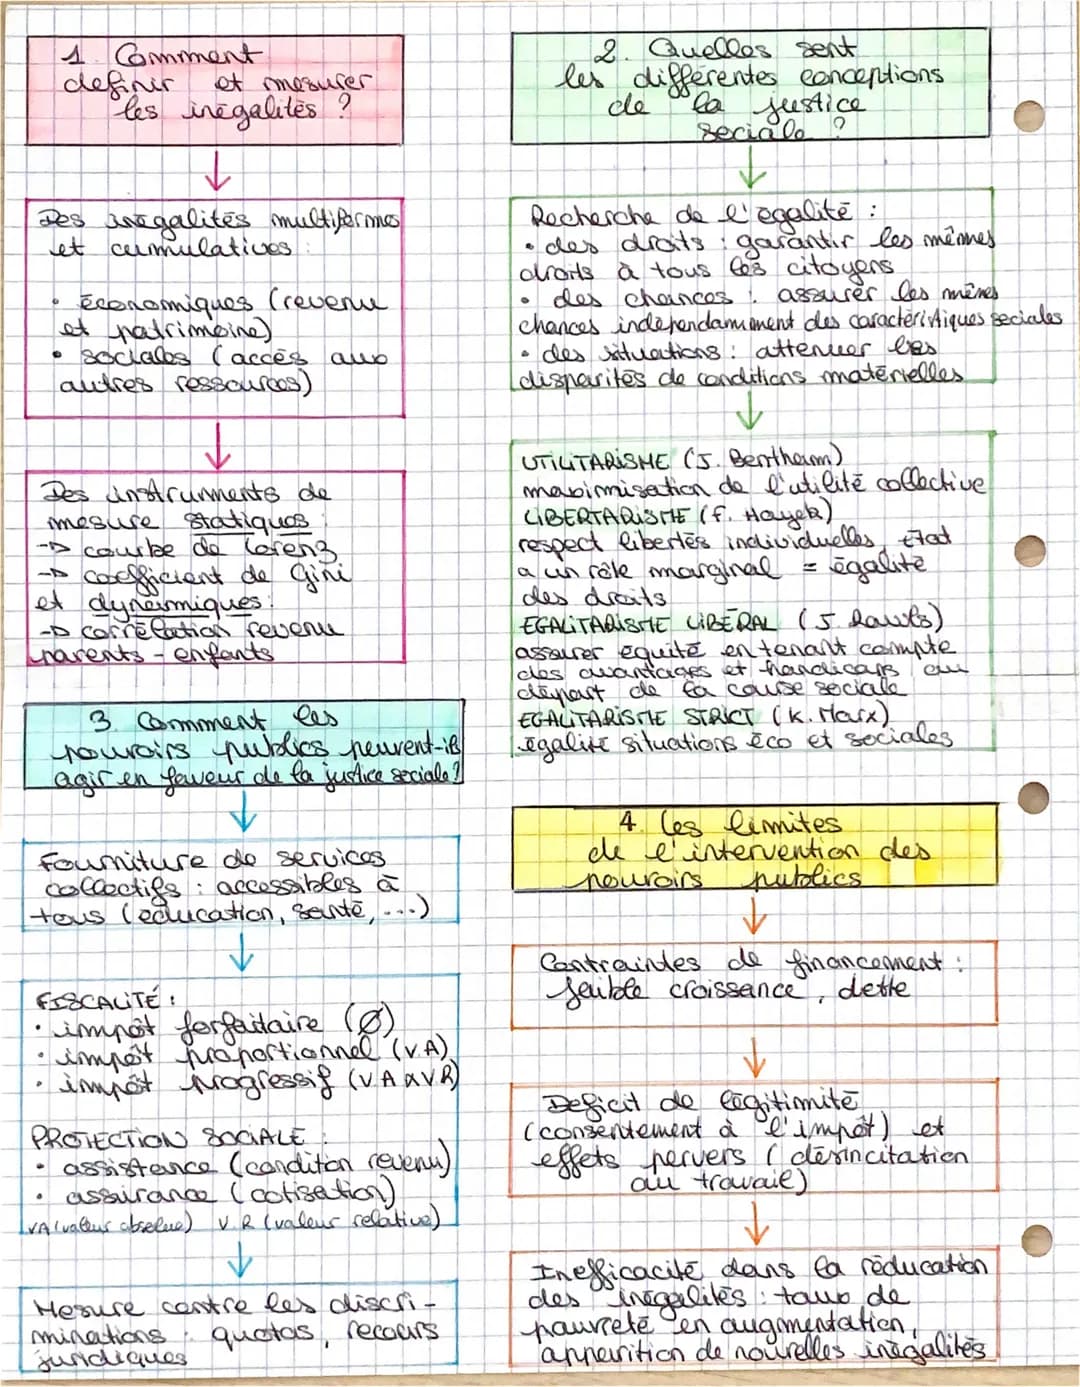 1. Comment
définir et mesurer
les inégalités ?
Des inégalités multiformes
et cumulatives :
• économiques (revenu
et patrimoine)
• sociales (accès aux
autres ressources)
Des instruments de
mesure statiques :
-> courbe de Lorenz
-> coefficient de Gini
et dynamiques :
-> corrélation revenu
parents - enfants
2. Quelles sont
les différentes conceptions
de la justice
sociale ?
Recherche de l'égalité :
• des droits : garantir les mêmes
droits à tous les citoyens
• des chances : assurer les mêmes
chances indépendamment des caractéristiques sociales
• des situations : attenuer les
disparités de conditions matérielles
UTILITARISME (J. Bentham)
maximisation de l'utilité collective
LIBERTARISME (F. Hayek)
respect libertés individuelles, État
a un rôle marginal = égalité
des droits
EGALITARISME LIBÉRAL (J. Rawls)
assurer equité en tenant compte
des avantages et handicaps au
départ de la course sociale
EGALITARISME STRICT (K. Marx)
égalité situations éco et sociales
3. Comment les
pouvoirs publics peuvent-ils
agir en faveur de la justice sociale ?
Fourniture de services
collectifs : accessibles à
tous (éducation, santé, ...)
FISCALITÉ :
• impôt forfaitaire (Ø)
• impôt proportionnel (VA)
• impôt progressif (VA & VR)
PROTECTION SOCIALE :
• assistance (conditon revenu)
• assurance (cotisation)
VA (valeur absolue) V.R (valeur relative)
Mesure contre les discri-
minations : quotas, recours
juridiques
4. Les limites
de l'intervention des
pouvoirs publics
Contraintes de financement :
faible croissance, dette
Deficit de légitimité
(consentement à l'impôt) et
effets pervers (désincitation
au travail)
Inefficacité dans la réducation
des inégalités : taux de
pauvreté en augmentation,
apparition de nouvelles inégalités